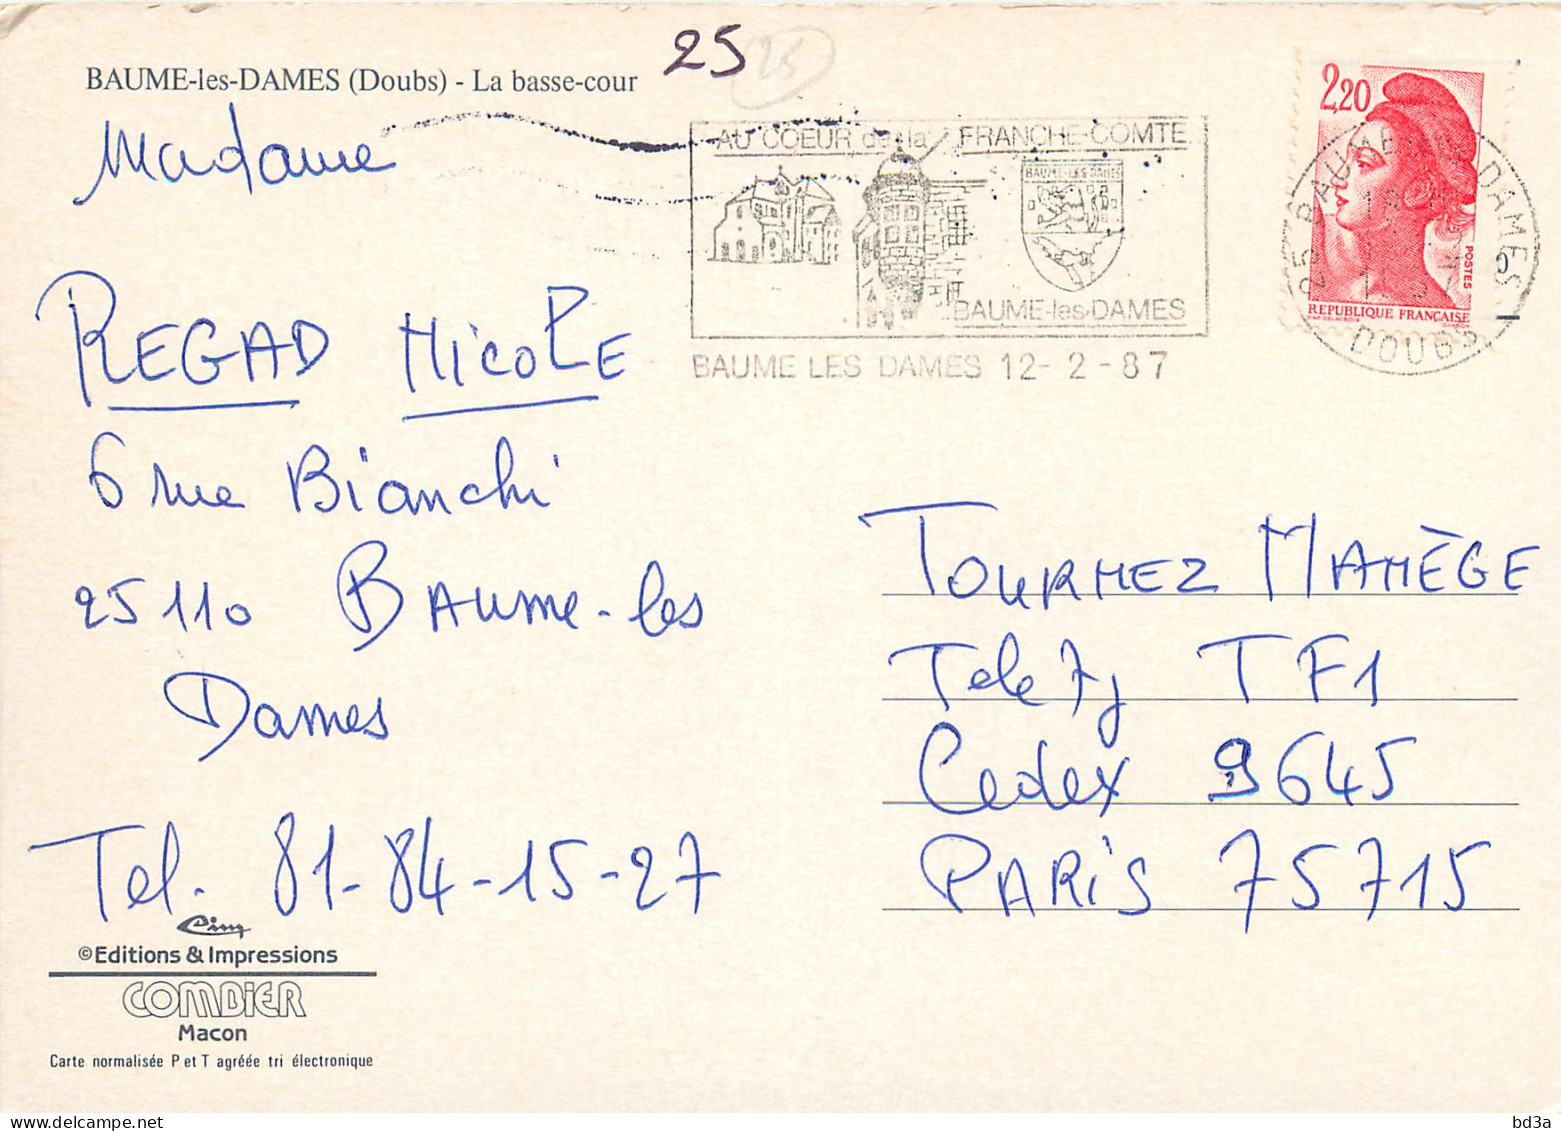 BAUME-les-DAMES (Doubs) - La basse-cour
25
25
Madame
REGAD NICOLE
6 rue Bianchi
25110 BAUME-les
Dames
Tel. 81-84-15-27
AU COEUR de la FRANCHE-COMTE
BAUME-LES-DAMES
BAUME-les-DAMES
BAUME LES DAMES 12-2-87
2,20
POSTES
REPUBLIQUE FRANÇAISE
25 BAUME LES DAMES
DOUBS
TOURNEZ MANÈGE
Tele 7j TF1
Cedex 9645
PARiS 75715
Cim
©Editions & Impressions
COMBIER
Macon
Carte normalisée P et T agréée tri électronique
bd3a